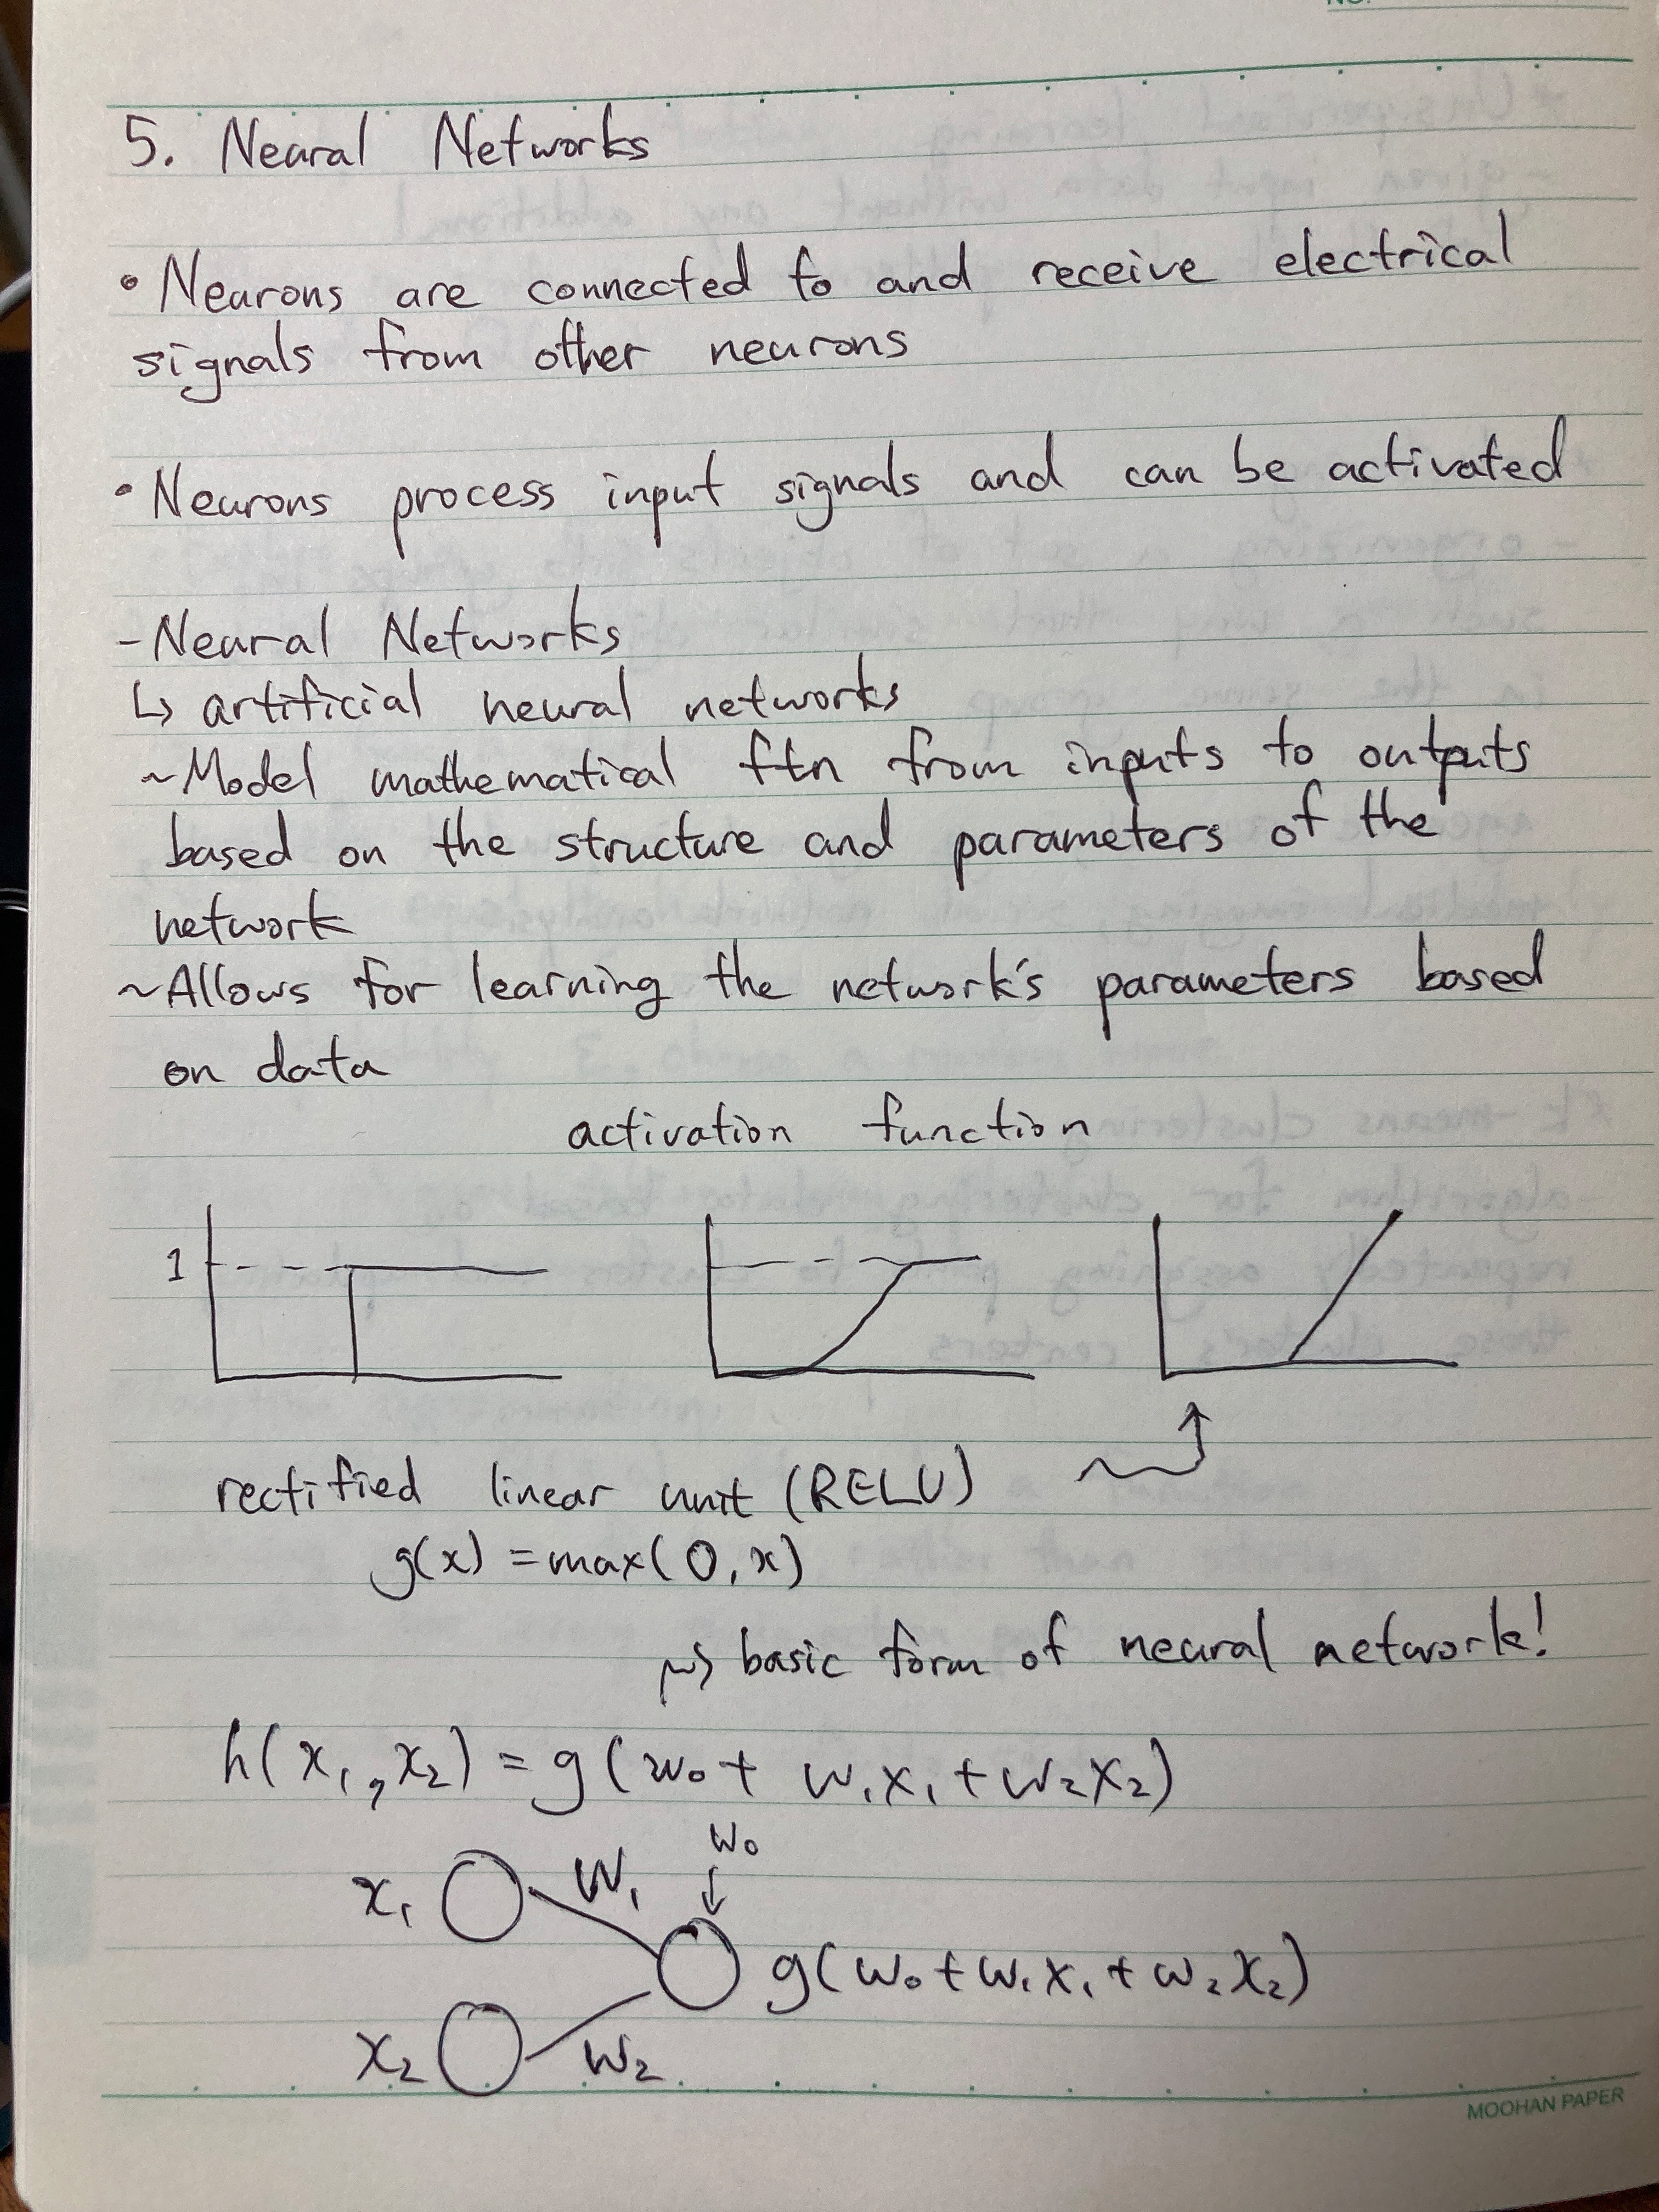 5. Neural Networks
• Neurons are connected to and receive electrical
signals from other neurons
• Neurons process input signals and can be activated
- Neural Networks
↳ artificial neural networks
~Model mathematical ftn from inputs to outputs
based on the structure and parameters of the
network
~Allows for learning the network's parameters based
on data
activation function
1
rectified linear unit (RELU)
g(x) = max(0, x)
↝ basic form of neural network!
h(x₁, x₂) = g(w₀ + w₁x₁ + w₂x₂)
w₀
x₁ w₁
g(w₀ + w₁x₁ + w₂x₂)
x₂ w₂
MOOHAN PAPER